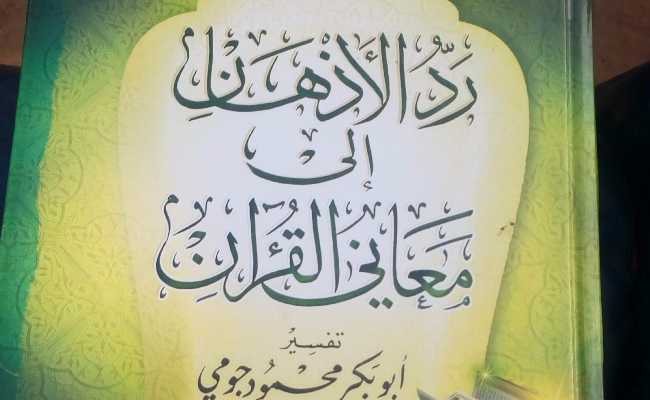 رَدُّ الأَذْهَانِ
إلى
مَعَانِي القُرْآنِ
تَفْسِيْر
أبو بكر محمود جومي